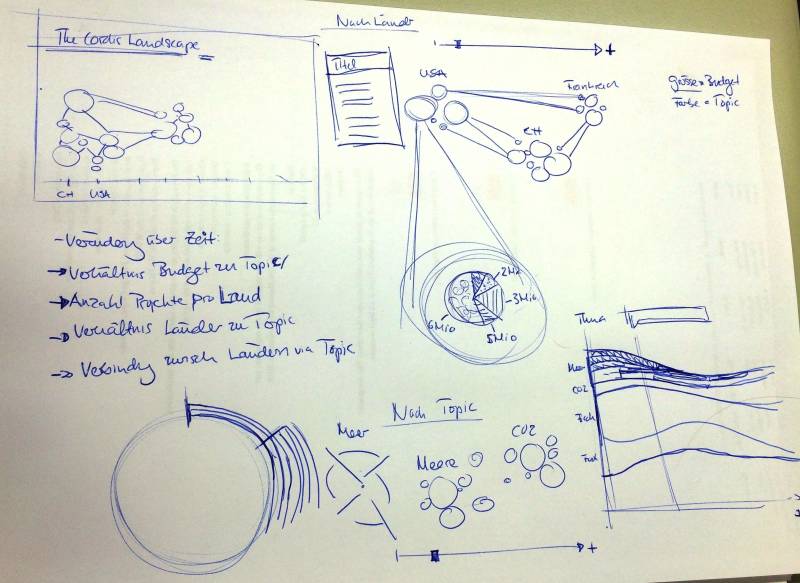 The Cordis Landscape
CH USA
Nach Länder
+
Titel
USA
Frankreich
CH
Grösse = Budget
Farbe = Topic
- Veränderg über Zeit:
→ Verhältnis Budget zu Topic/
→ Anzahl Projekte pro Land
→ Verhältnis Länder zu Topic
→ Verbindg zwisch Ländern via Topic
2Mio
3Mio
5Mio
6Mio
Thema
Meer
CO2
Fisch
Nach Topic
Meer
Meere
CO2
+